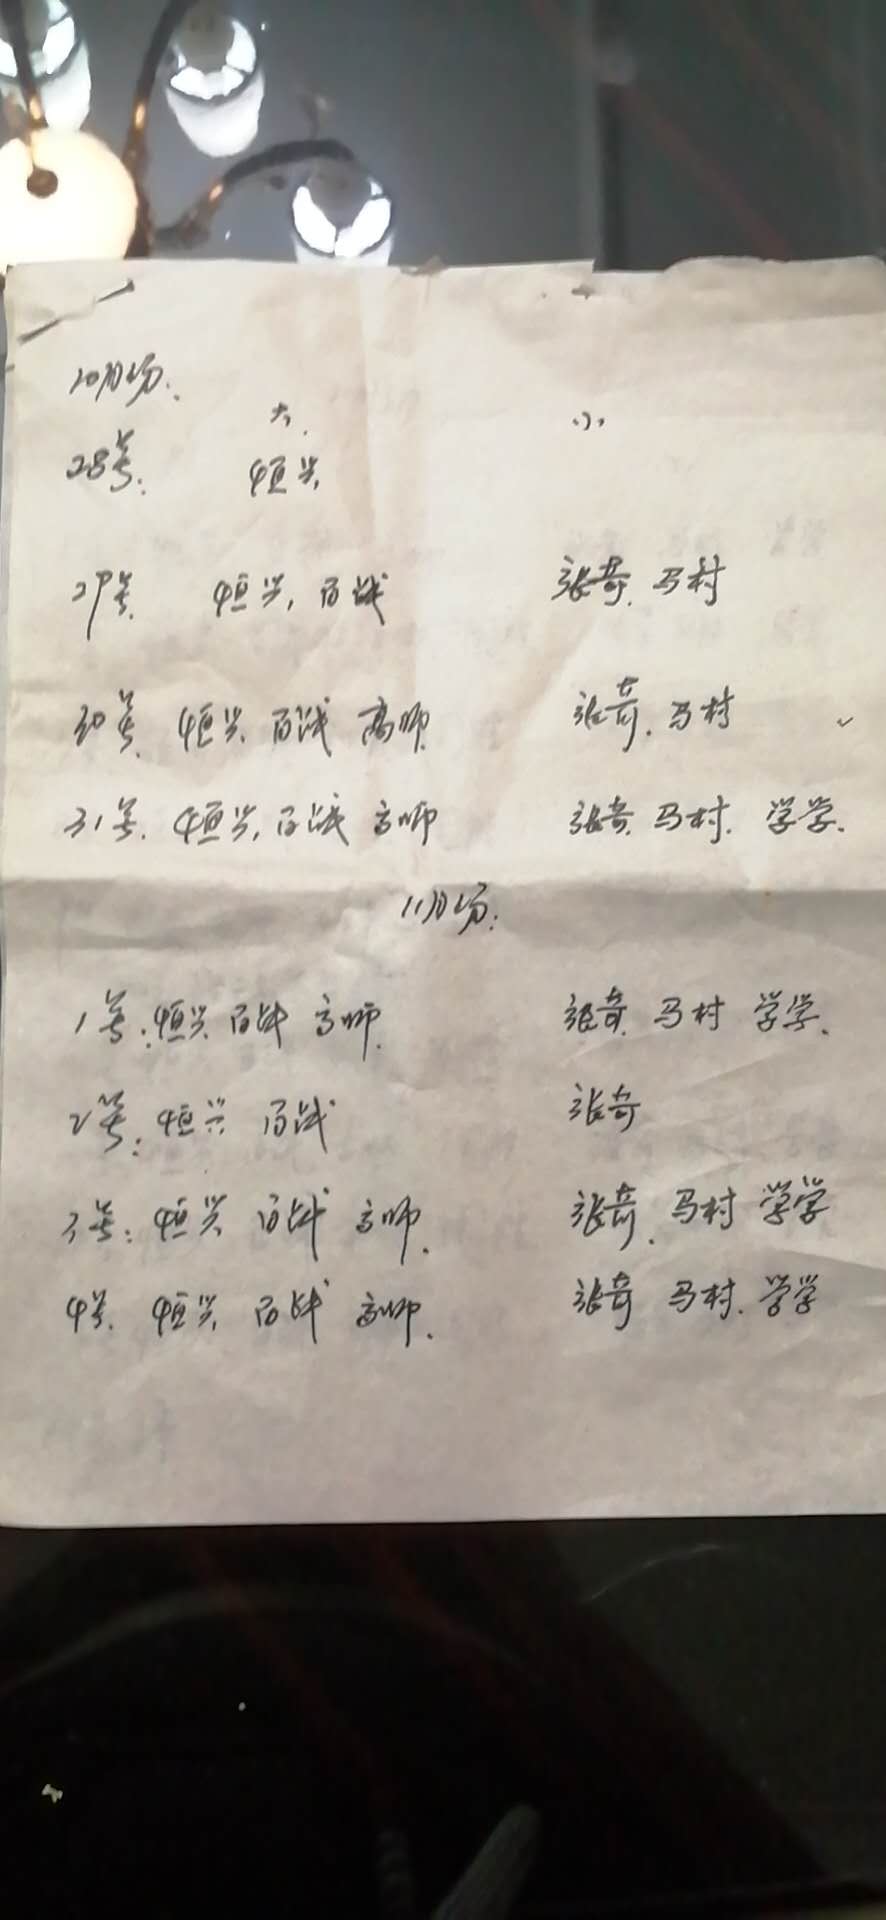 10月份:
大. 小
28号: 恒兴
29号. 恒兴, 百战 张奇. 马村
30号. 恒兴. 百战 高师. 张奇. 马村
31号. 恒兴, 百战 高师 张奇. 马村. 学学.
11月份:
1号: 恒兴 百战 高师. 张奇. 马村 学学.
2号: 恒兴 百战 张奇
3号: 恒兴 百战 高师. 张奇. 马村 学学
4号. 恒兴. 百战 高师. 张奇 马村. 学学